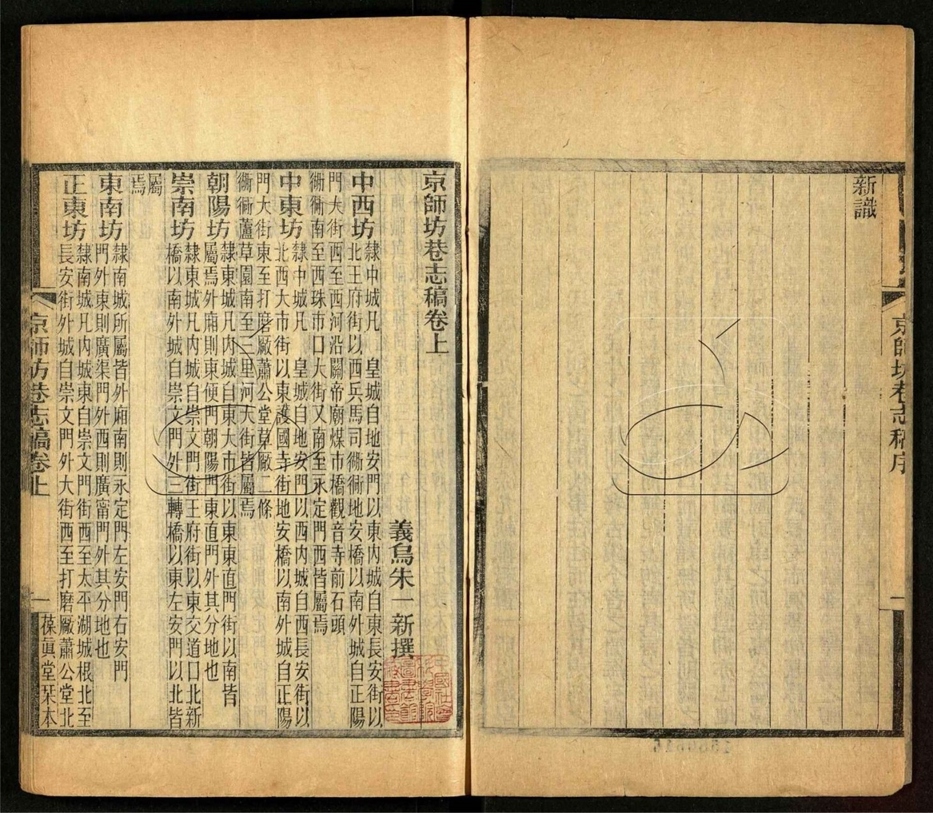 新識
京師坊巷志稿序
京師坊巷志稿卷上
義烏朱一新撰
中西坊隸中城凡 皇城自地安門以東內城自東長安街以
北王府街以西兵馬司衚衕地安橋以南外城自正陽
門大街西至西河沿關帝廟煤市橋觀音寺前石頭
衚衕南至西珠市口大街又南至永定門西皆屬焉
中東坊隸中城凡 皇城自地安門以西內城自西長安街以
北西大市街以東護國寺街地安橋以南外城自正陽
門大街東至打磨廠蕭公堂草廠二條
衚衕蘆草園南至三里河大街皆屬焉
朝陽坊隸東城凡內城自東大市街以東東直門街以南皆
屬焉外廂則東便門朝陽門東直門外其分地也
崇南坊隸東城凡內城自崇文門街王府街以東交道口北新
橋以南外城自崇文門外三轉橋以東左安門以北皆
屬
焉
東南坊隸南城所屬皆外廂南則永定門左安門右安門
門外東則廣渠門外西則廣甯門外其分地也
正東坊隸南城凡內城東自崇文門街西至太平湖城根北至
長安街外城自崇文門外大街西至打磨廠蕭公堂北
京師坊巷志稿卷上
一
葆真堂栞本